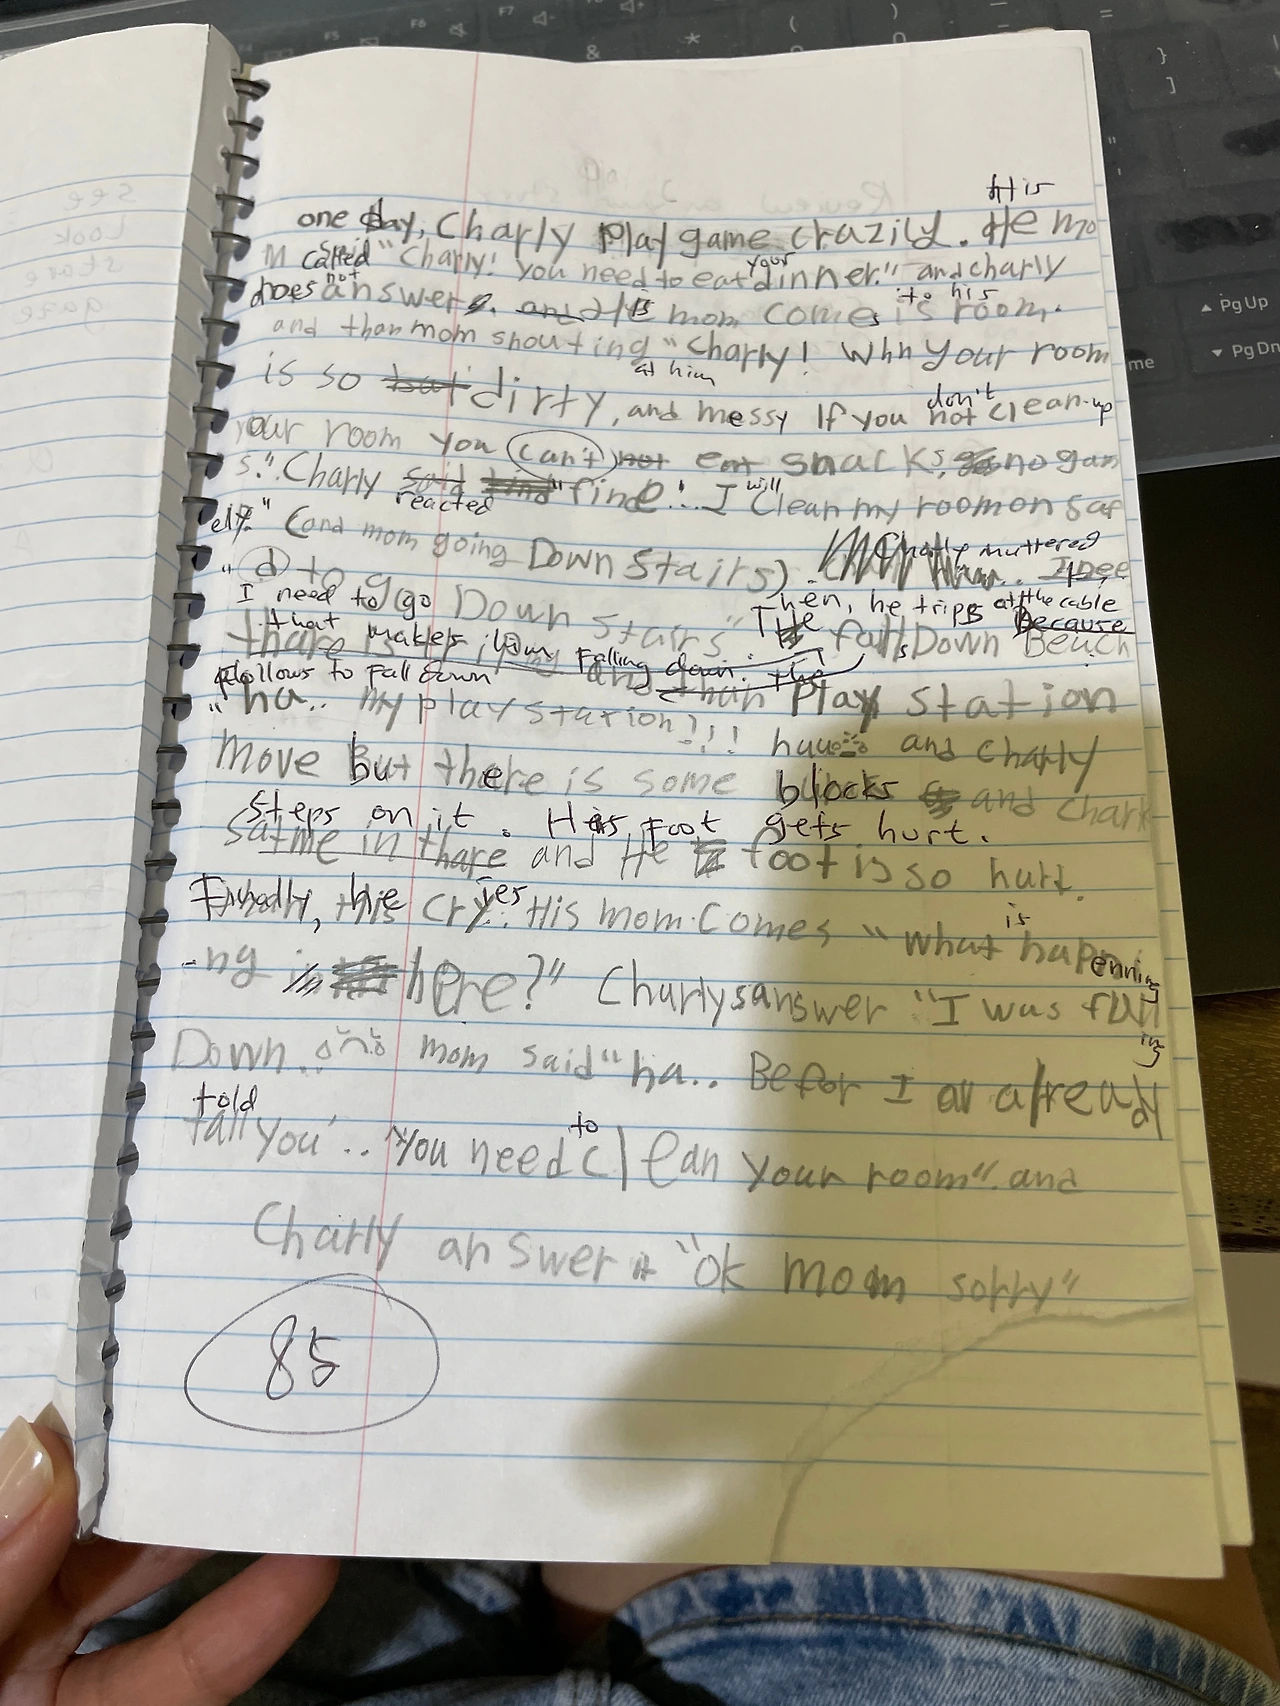 His
one day, Charly Play game crazily. He mo
m said called "Charly! you need to eat your dinner." and charly
does not answer. and His mom comes to his room.
and than mom shouting at him "Charly! Whn your room
is so but dirty, and messy If you don't not clean-up
your room you can't not eat snacks, no gam
s." Charly said reacted "fine!.. I will clean my room on saf
ely." (and mom going Down Stairs). Charly muttered I nee
"d to go Down stairs"
I need to go Then, he trips at the cable
that makes him falling down. The falls Down Because
follows to fall down and than the Play station
"ha.. my play station!!! huu and Charly
move but there is some blocks and Charl
steps on it. His foot gets hurt.
in thare and He foot is so hurt.
Finally, he cries. His mom comes "what is happ enning
-ng in here?" Charlys answer "I was fall ing
Down.. mom said "ha.. Befor I already
told tall you".. "you need to clean your room". and
Charly answer "ok mom sorry"
85
see
Look
stare
gaze
PgUp
PgDn
me
F6
F7
&
*
(
)
=
}
]